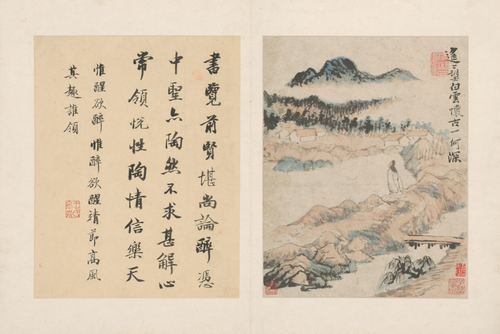 遙遙望白雲懷古一何深
書覽前賢堪尚論醉憑
中聖亦陶然不求甚解心
常領悅性陶情信樂天
惟醒欲醉惟醉欲醒靖節高風
其趣誰領